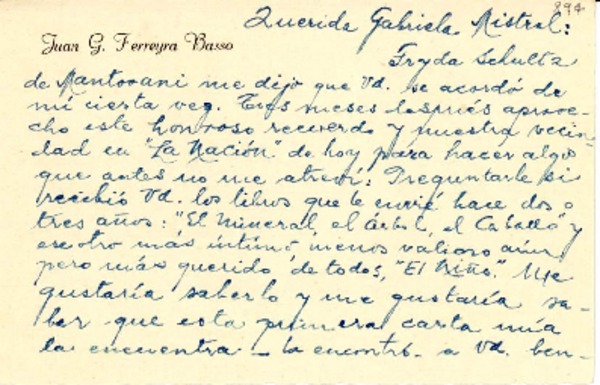 894
Querida Gabriela Mistral:
Juan G. Ferreyra Basso
Fryda Schultz
de Mantovani me dijo que Vd. se acordó de
mí cierta vez. Tres meses después aprove-
cho este honroso recuerdo y nuestra vecin-
dad en "La Nación" de hoy para hacer algo
que antes no me atreví: Preguntarle si
recibió Vd. los libros que le envié hace dos o
tres años: "El Mineral, el Árbol, el Caballo" y
ese otro más íntimo, menos valioso aún
pero más querido de todos, "El Niño". Me
gustaría saberlo y me gustaría sa-
ber que esta primera carta mía
la encuentra - la encontró - a Vd. bien-